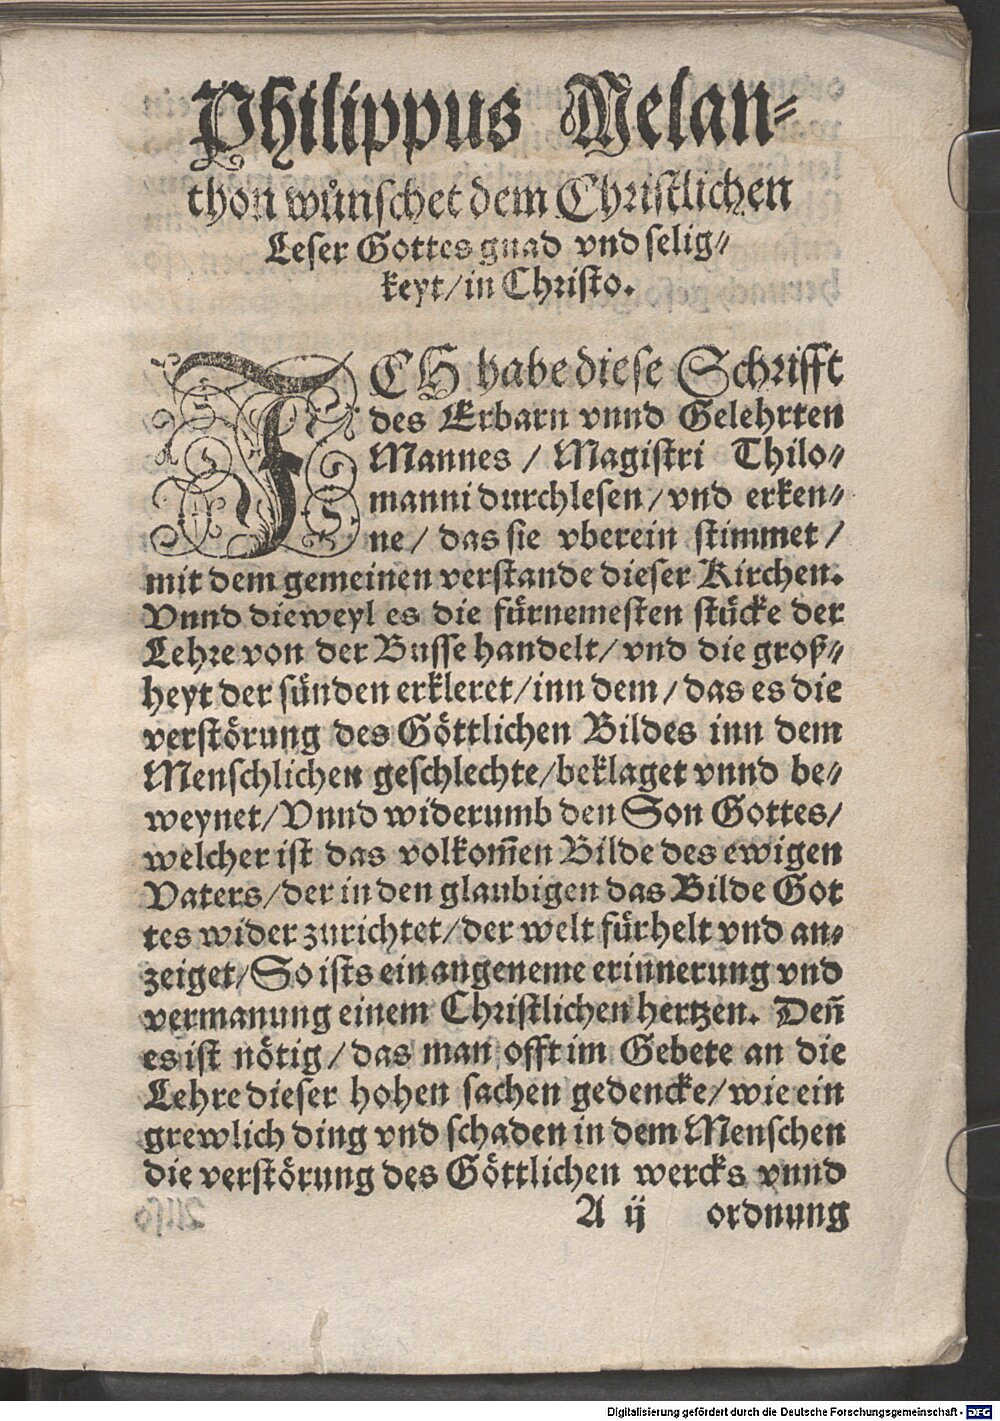 Philippus Melan⸗
thon wůnschet dem Christlichen
Leser Gottes gnad vnd selig⸗
keyt/in Christo.
ICH habe diese Schrifft
des Erbarn vnnd Gelehrten
Mannes / Magistri Thilo⸗
manni durchlesen/vnd erken⸗
ne / das sie vberein stimmet /
mit dem gemeinen verstande dieser Kirchen.
Vnnd dieweyl es die fürnemesten stücke der
Lehre von der Busse handelt/ vnd die groß⸗
heyt der sünden erkleret/inn dem/das es die
verstörung des Göttlichen Bildes inn dem
Menschlichen geschlechte/beklaget vnnd be⸗
weynet/Vnnd widerumb den Son Gottes/
welcher ist das volkom̃en Bilde des ewigen
Vaters/der in den glaubigen das Bilde Got
tes wider zurichtet/der welt fürhelt vnd an⸗
zeiget/So ists ein angeneme erinnerung vnd
vermanung einem Christlichen hertzen. Deñ
es ist nötig/das man offt im Gebete an die
Lehre dieser hohen sachen gedencke/wie ein
grewlich ding vnd schaden in dem Menschen
die verstörung des Göttlichen wercks vnnd
A ij ordnung
Digitalisierung gefördert durch die Deutsche Forschungsgemeinschaft - DFG